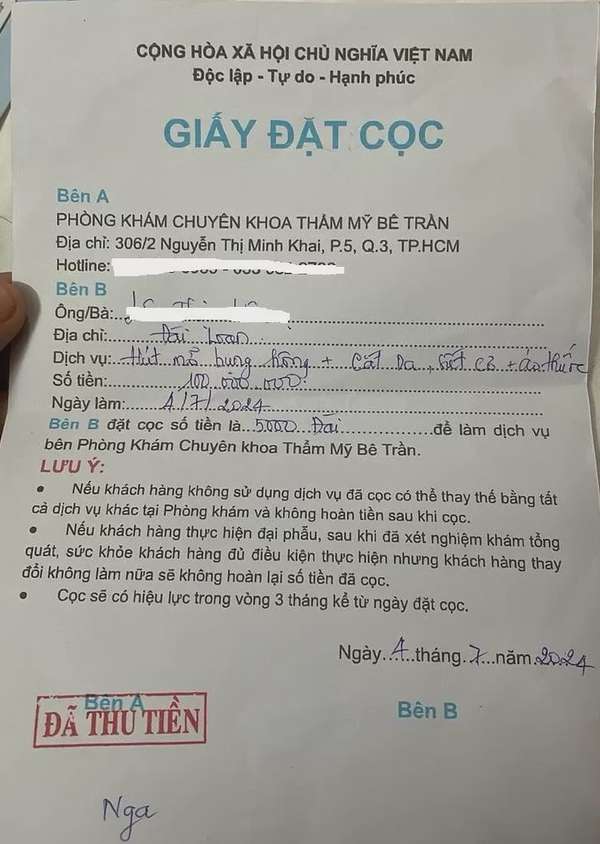 CỘNG HÒA XÃ HỘI CHỦ NGHĨA VIỆT NAM
Độc lập - Tự do - Hạnh phúc
GIẤY ĐẶT CỌC
Bên A
PHÒNG KHÁM CHUYÊN KHOA THẨM MỸ BÊ TRẦN
Địa chỉ: 306/2 Nguyễn Thị Minh Khai, P.5, Q.3, TP.HCM
Hotline:
Bên B
Ông/Bà:
Địa chỉ: Đài Loan
Dịch vụ: Hút mỡ bụng hông + Cắt Da, + áo thước
Số tiền: 100.000.000
Ngày làm: 4/7/2024
Bên B đặt cọc số tiền là 5000 Đài để làm dịch vụ
bên Phòng Khám Chuyên khoa Thẩm Mỹ Bê Trần.
LƯU Ý:
• Nếu khách hàng không sử dụng dịch vụ đã cọc có thể thay thế bằng tất
cả dịch vụ khác tại Phòng khám và không hoàn tiền sau khi cọc.
• Nếu khách hàng thực hiện đại phẫu, sau khi đã xét nghiệm khám tổng
quát, sức khỏe khách hàng đủ điều kiện thực hiện nhưng khách hàng thay
đổi không làm nữa sẽ không hoàn lại số tiền đã cọc.
• Cọc sẽ có hiệu lực trong vòng 3 tháng kể từ ngày đặt cọc.
Ngày 4 tháng 7 năm 2024
Bên A
ĐÃ THU TIỀN
Bên B
Nga